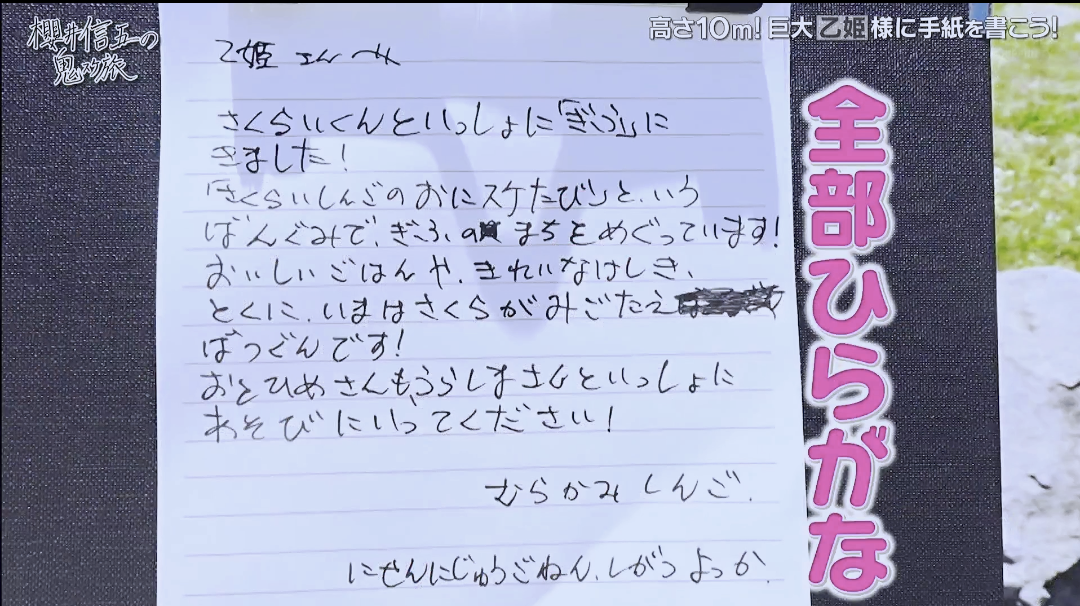 櫻井信五の
鬼スケ旅
高さ10m!巨大乙姫様に手紙を書こう!
全部ひらがな
乙姫 さんへ
さくらいくんといっしょに「ぎふ」に
きました!
「さくらいしんごのおにスケたび」という
ばんぐみで、ぎふ、の まちをめぐっています!
おいしいごはんや、きれいなけしき、
とくに、いまはさくらがみごたえ
ばつぐんです!
おとひめさんも、うらしまさんといっしょに
あそびにいってください!
むらかみしんご.
にせんにじゅうごねん、しがつよっか.